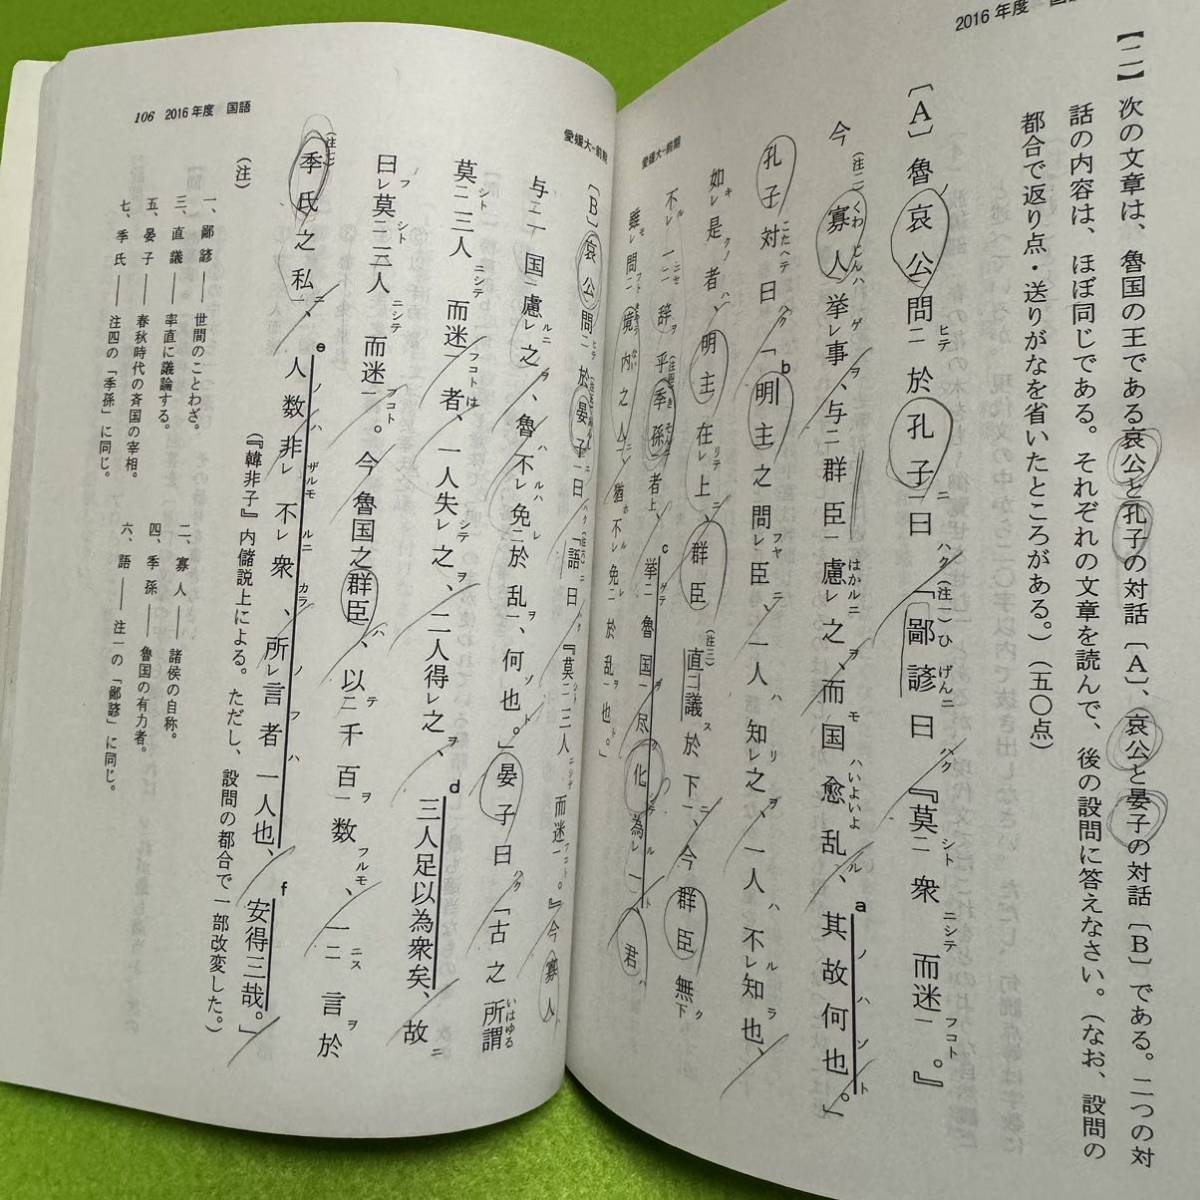 2016年度 国語
【二】次の文章は、魯国の王である哀公と孔子の対話〔A〕、哀公と晏子の対話〔B〕である。二つの対
話の内容は、ほぼ同じである。それぞれの文章を読んで、後の設問に答えなさい。(なお、設問の
都合で返り点・送りがなを省いたところがある。)(五〇点)
〔A〕魯哀公問二於孔子一曰「鄙諺曰『莫二衆而迷一。』
今寡人挙レ事、与二群臣一慮レ之、而国愈乱、其故何也。」
孔子対曰「明主之問レ臣、一人知レ之、一人不レ知也、
如レ是者、明主在レ上、群臣直二議於下一、今群臣無下
不レ一二辞乎季孫一者上、挙二魯国一尽化為レ一、君
雖レ問二境内之人一、猶不レ免二於乱一也。」
愛媛大-前期
愛媛大-前期
106 2016年度 国語
〔B〕哀公問二於晏子一曰「語曰『莫二三人而迷一。』今寡人
与二一国一慮レ之、魯不レ免二於乱一、何也。」晏子曰「古之所謂
莫二三人而迷一者、一人失レ之、二人得レ之、三人足以為衆矣、故
曰レ莫二三人而迷一。今魯国之群臣、以二千百一数、一二言於
季氏之私一、人数非レ不レ衆、所レ言者一人也、安得三哉。」
(『韓非子』内儲説上による。ただし、設問の都合で一部改変した。)
(注)
一、鄙諺――世間のことわざ。
二、寡人――諸侯の自称。
三、直議――率直に議論する。
四、季孫――魯国の有力者。
五、晏子――春秋時代の斉国の宰相。
六、語――注一の「鄙諺」に同じ。
七、季氏――注四の「季孫」に同じ。